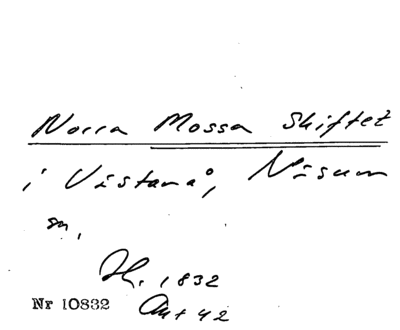 Norra Mossa Skiftet
i Vistanå, Näsum
sn.
H. 1832
Nr 10832 Akt 42